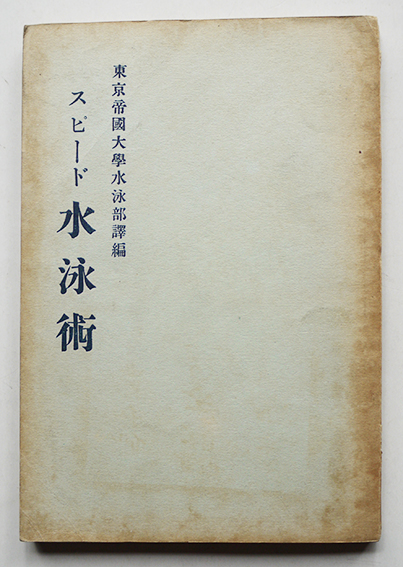 東京帝國大學水泳部譯編
スピード水泳術